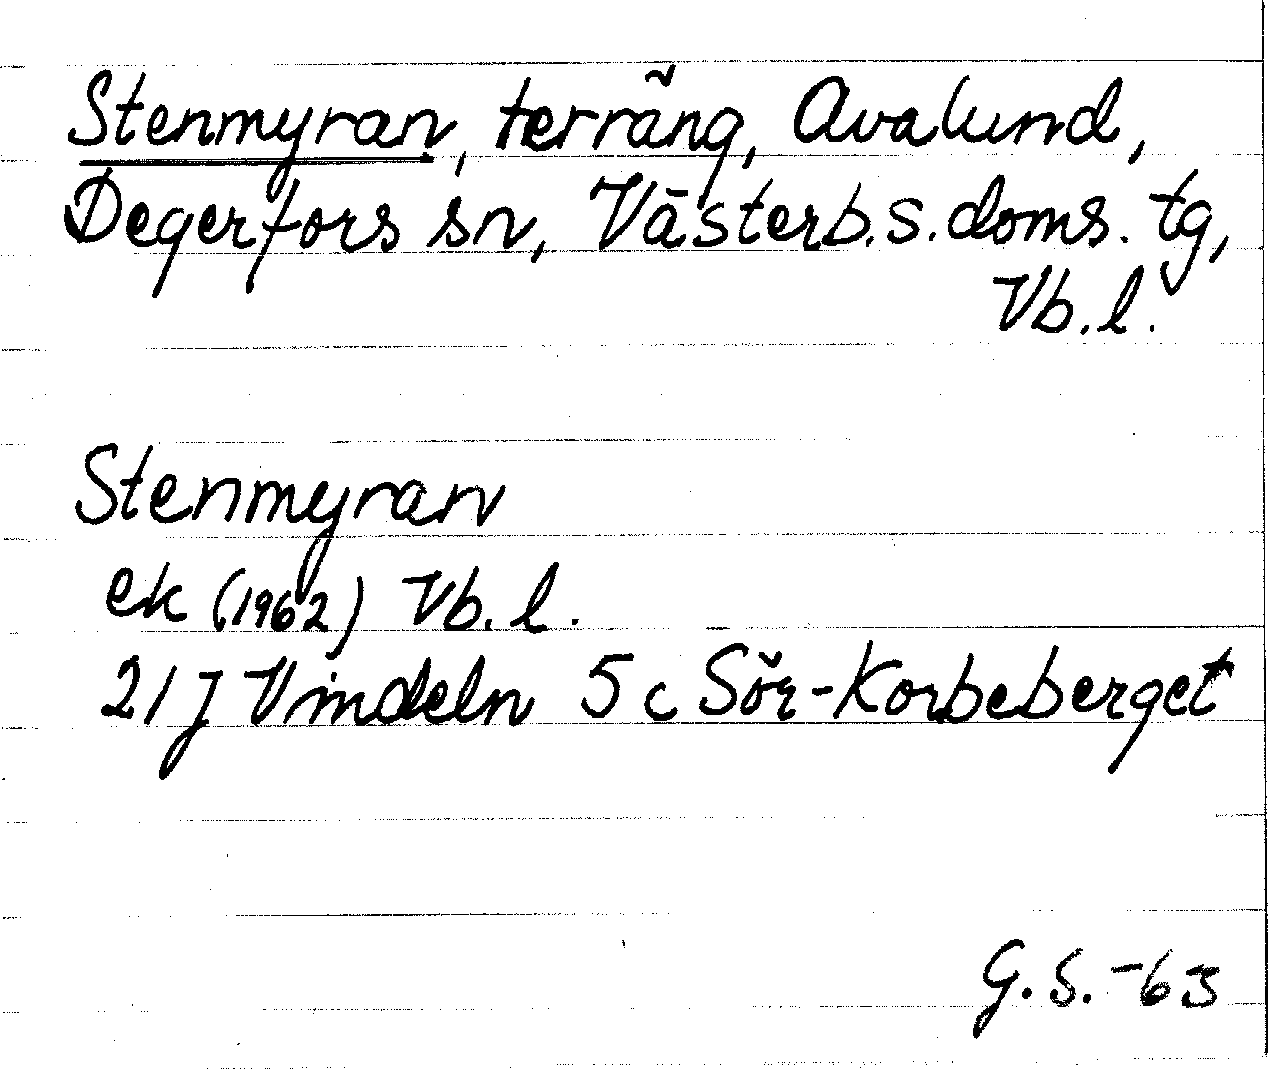 Stenmyran, terräng, Avalund,
Degerfors sn, Västerb.s.doms.tg,
Vb.l.
Stenmyran
ek (1962) Vb.l.
21 J Vindeln 5 c Sör-Korbeberget
G.S. -63